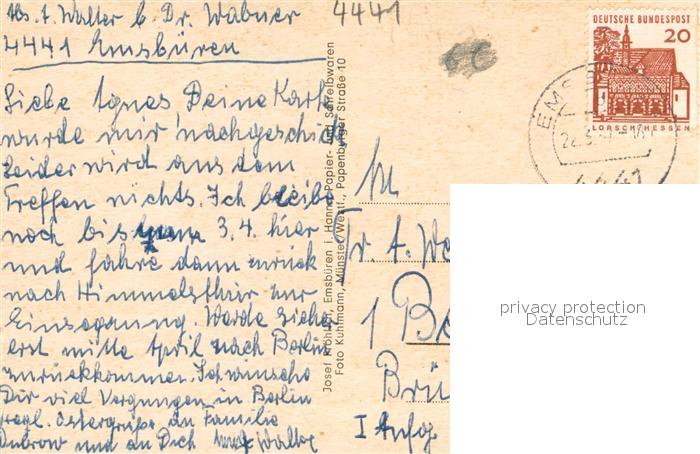 Abs. A. Walter b. Dr. Wabner
4441 Emsbüren
4441
Liebe Agnes Deine Karte
wurde mir nachgeschickt
Leider wird aus dem
Treffen nichts. Ich bleibe
noch bis zum 3. 4. hier
und fahre dann zurück
nach Himmelsthür zur
Einsegnung. Werde sicher
erst mitte April nach Berlin
zurückkommen. Ich wünsche
Dir viel Vergnügen in Berlin
Ostergrüße an Familie
Dubrow und an Dich Walter
Josef Krohlen, Emsbüren i. Hann., Papier- und Schreibwaren
Foto Kuhlmann, Münster Westf., Papenburger Straße 10
DEUTSCHE BUNDESPOST
20
LORSCH/HESSEN
EMSB
4441
1 Be
Brü
privacy protection
Datenschutz